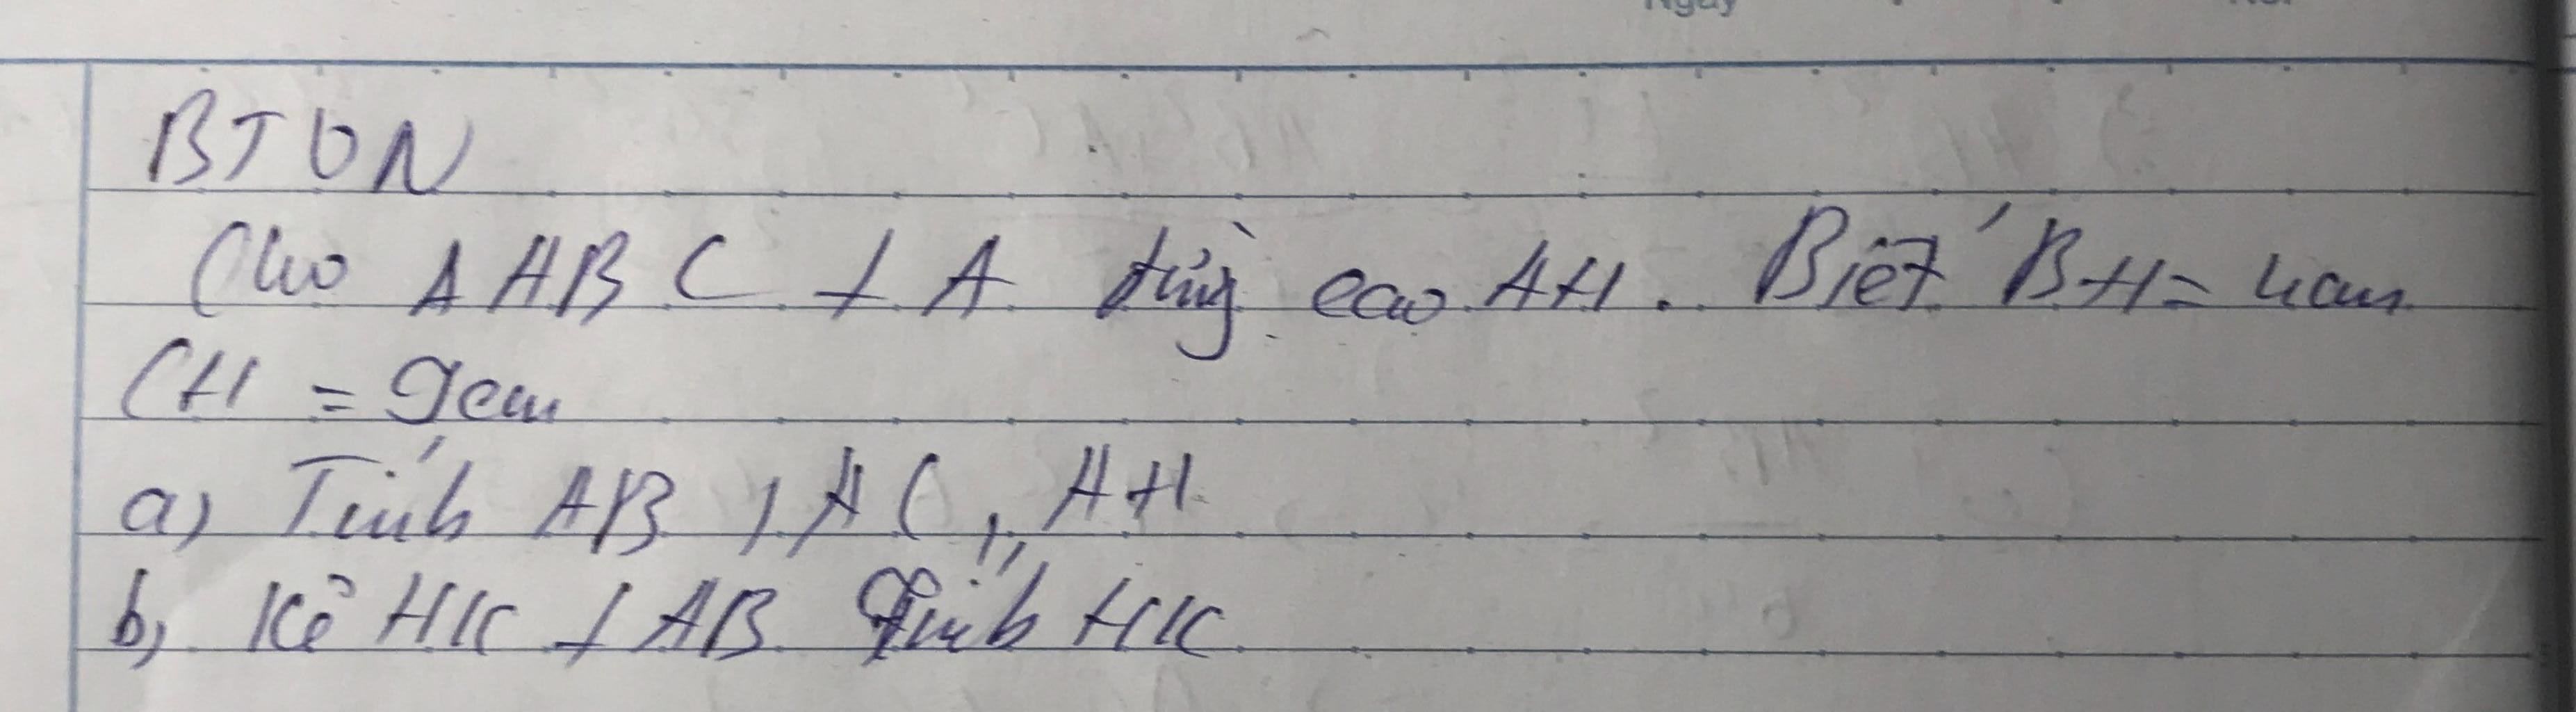 BTVN
Cho ΔABC ⊥ A đường cao AH. Biết BH = 4cm
CH = 9cm
a) Tính AB, AC, AH
b) Kẻ HK ⊥ AB Tính HK